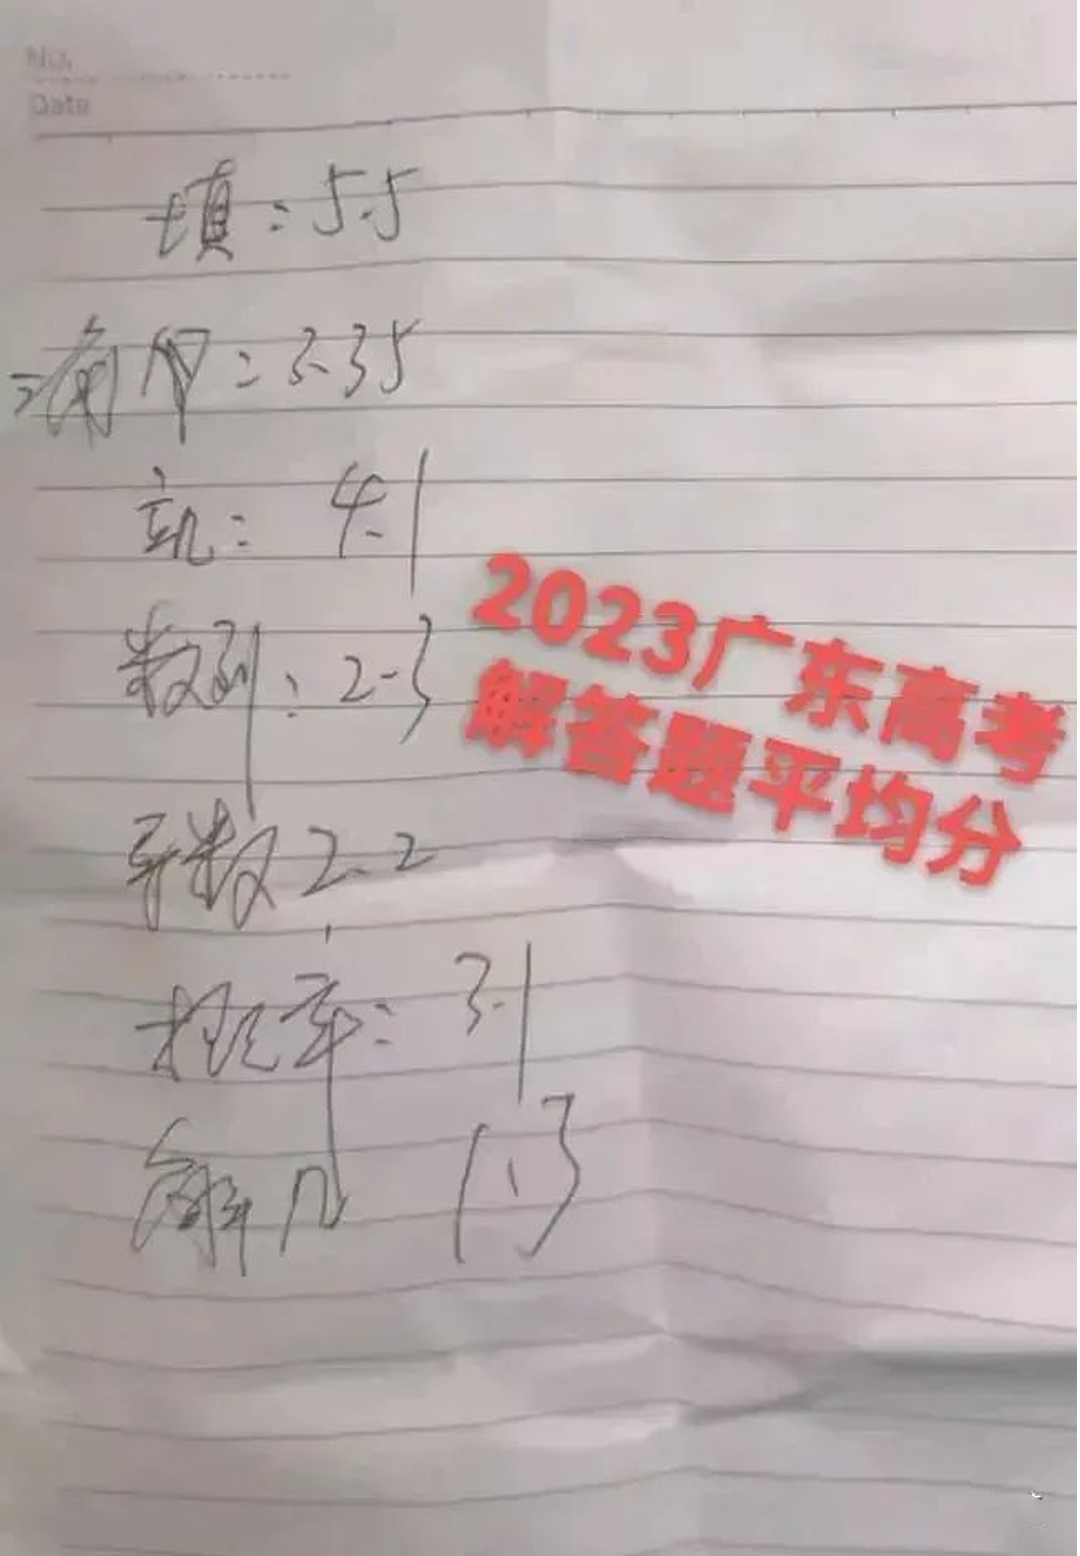 No.
Date
填：5.5
三角甲：3.35
立几：4.1
数列：2.3
2023广东高考
解答题平均分
导数2.2
概率：3.1
解几 1.3